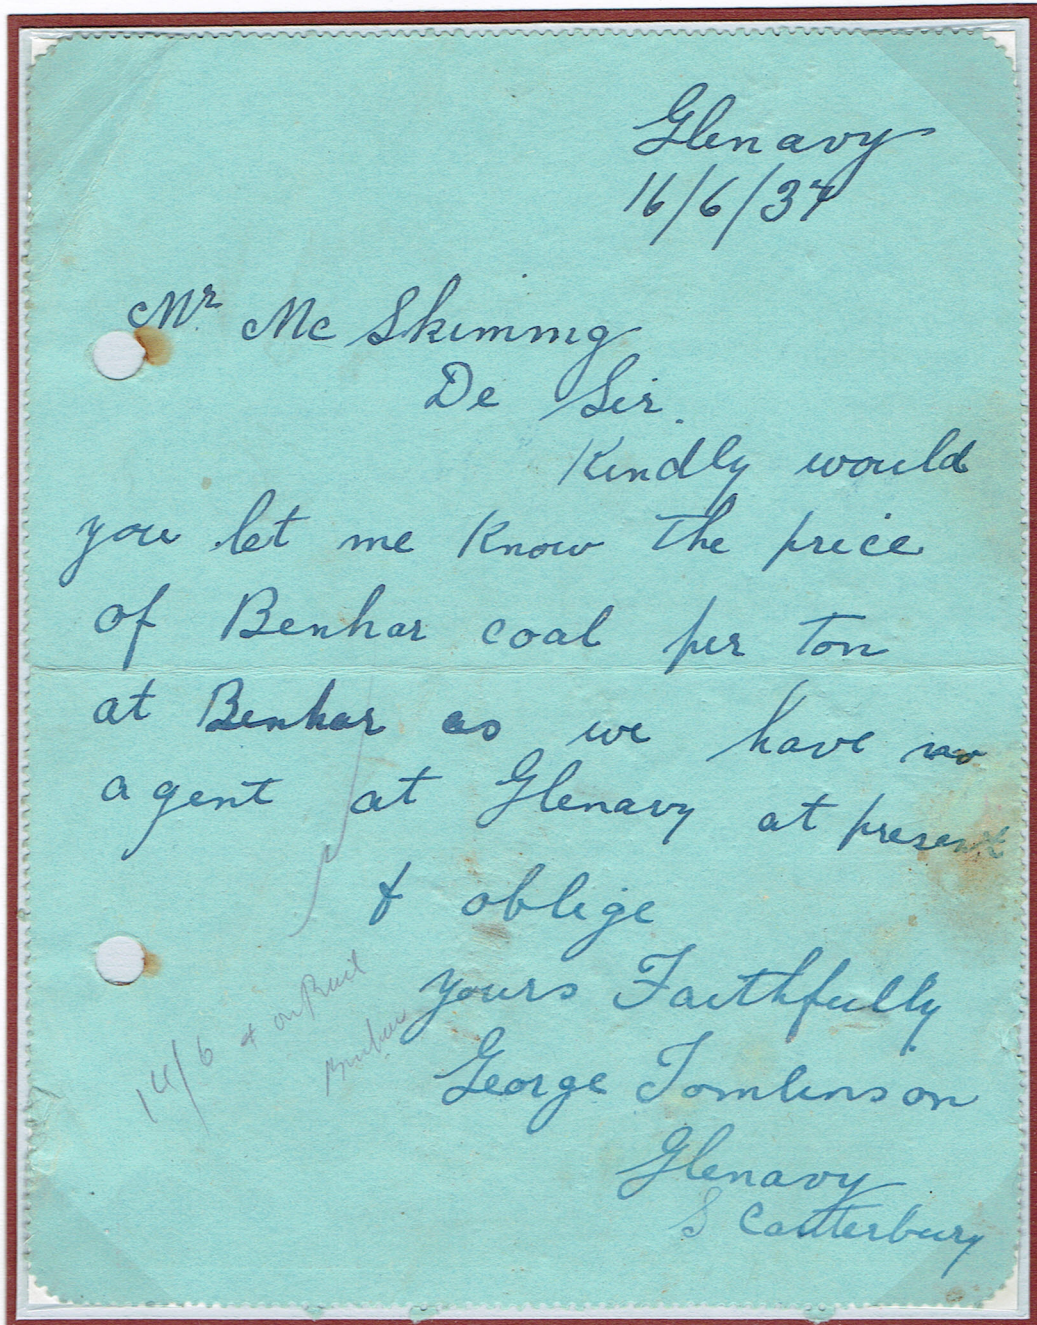 Glenavy
16/6/37
Mr. Mc Skimmg
De Sir.
Kindly would
you let me know the price
of Benhar coal per ton
at Benhar as we have no
agent at Glenavy at present
& oblige
yours Faithfully
George Tomlinson
Glenavy
S Canterbury
14/6 + on Rail
Benhar